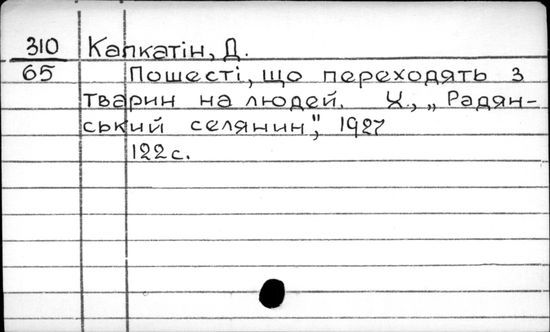 310 Капкатін, Д.
65 Пошесті, що переходять з
тварин на людей. Х., „Радян-
ський селянин", 1927
122 с.